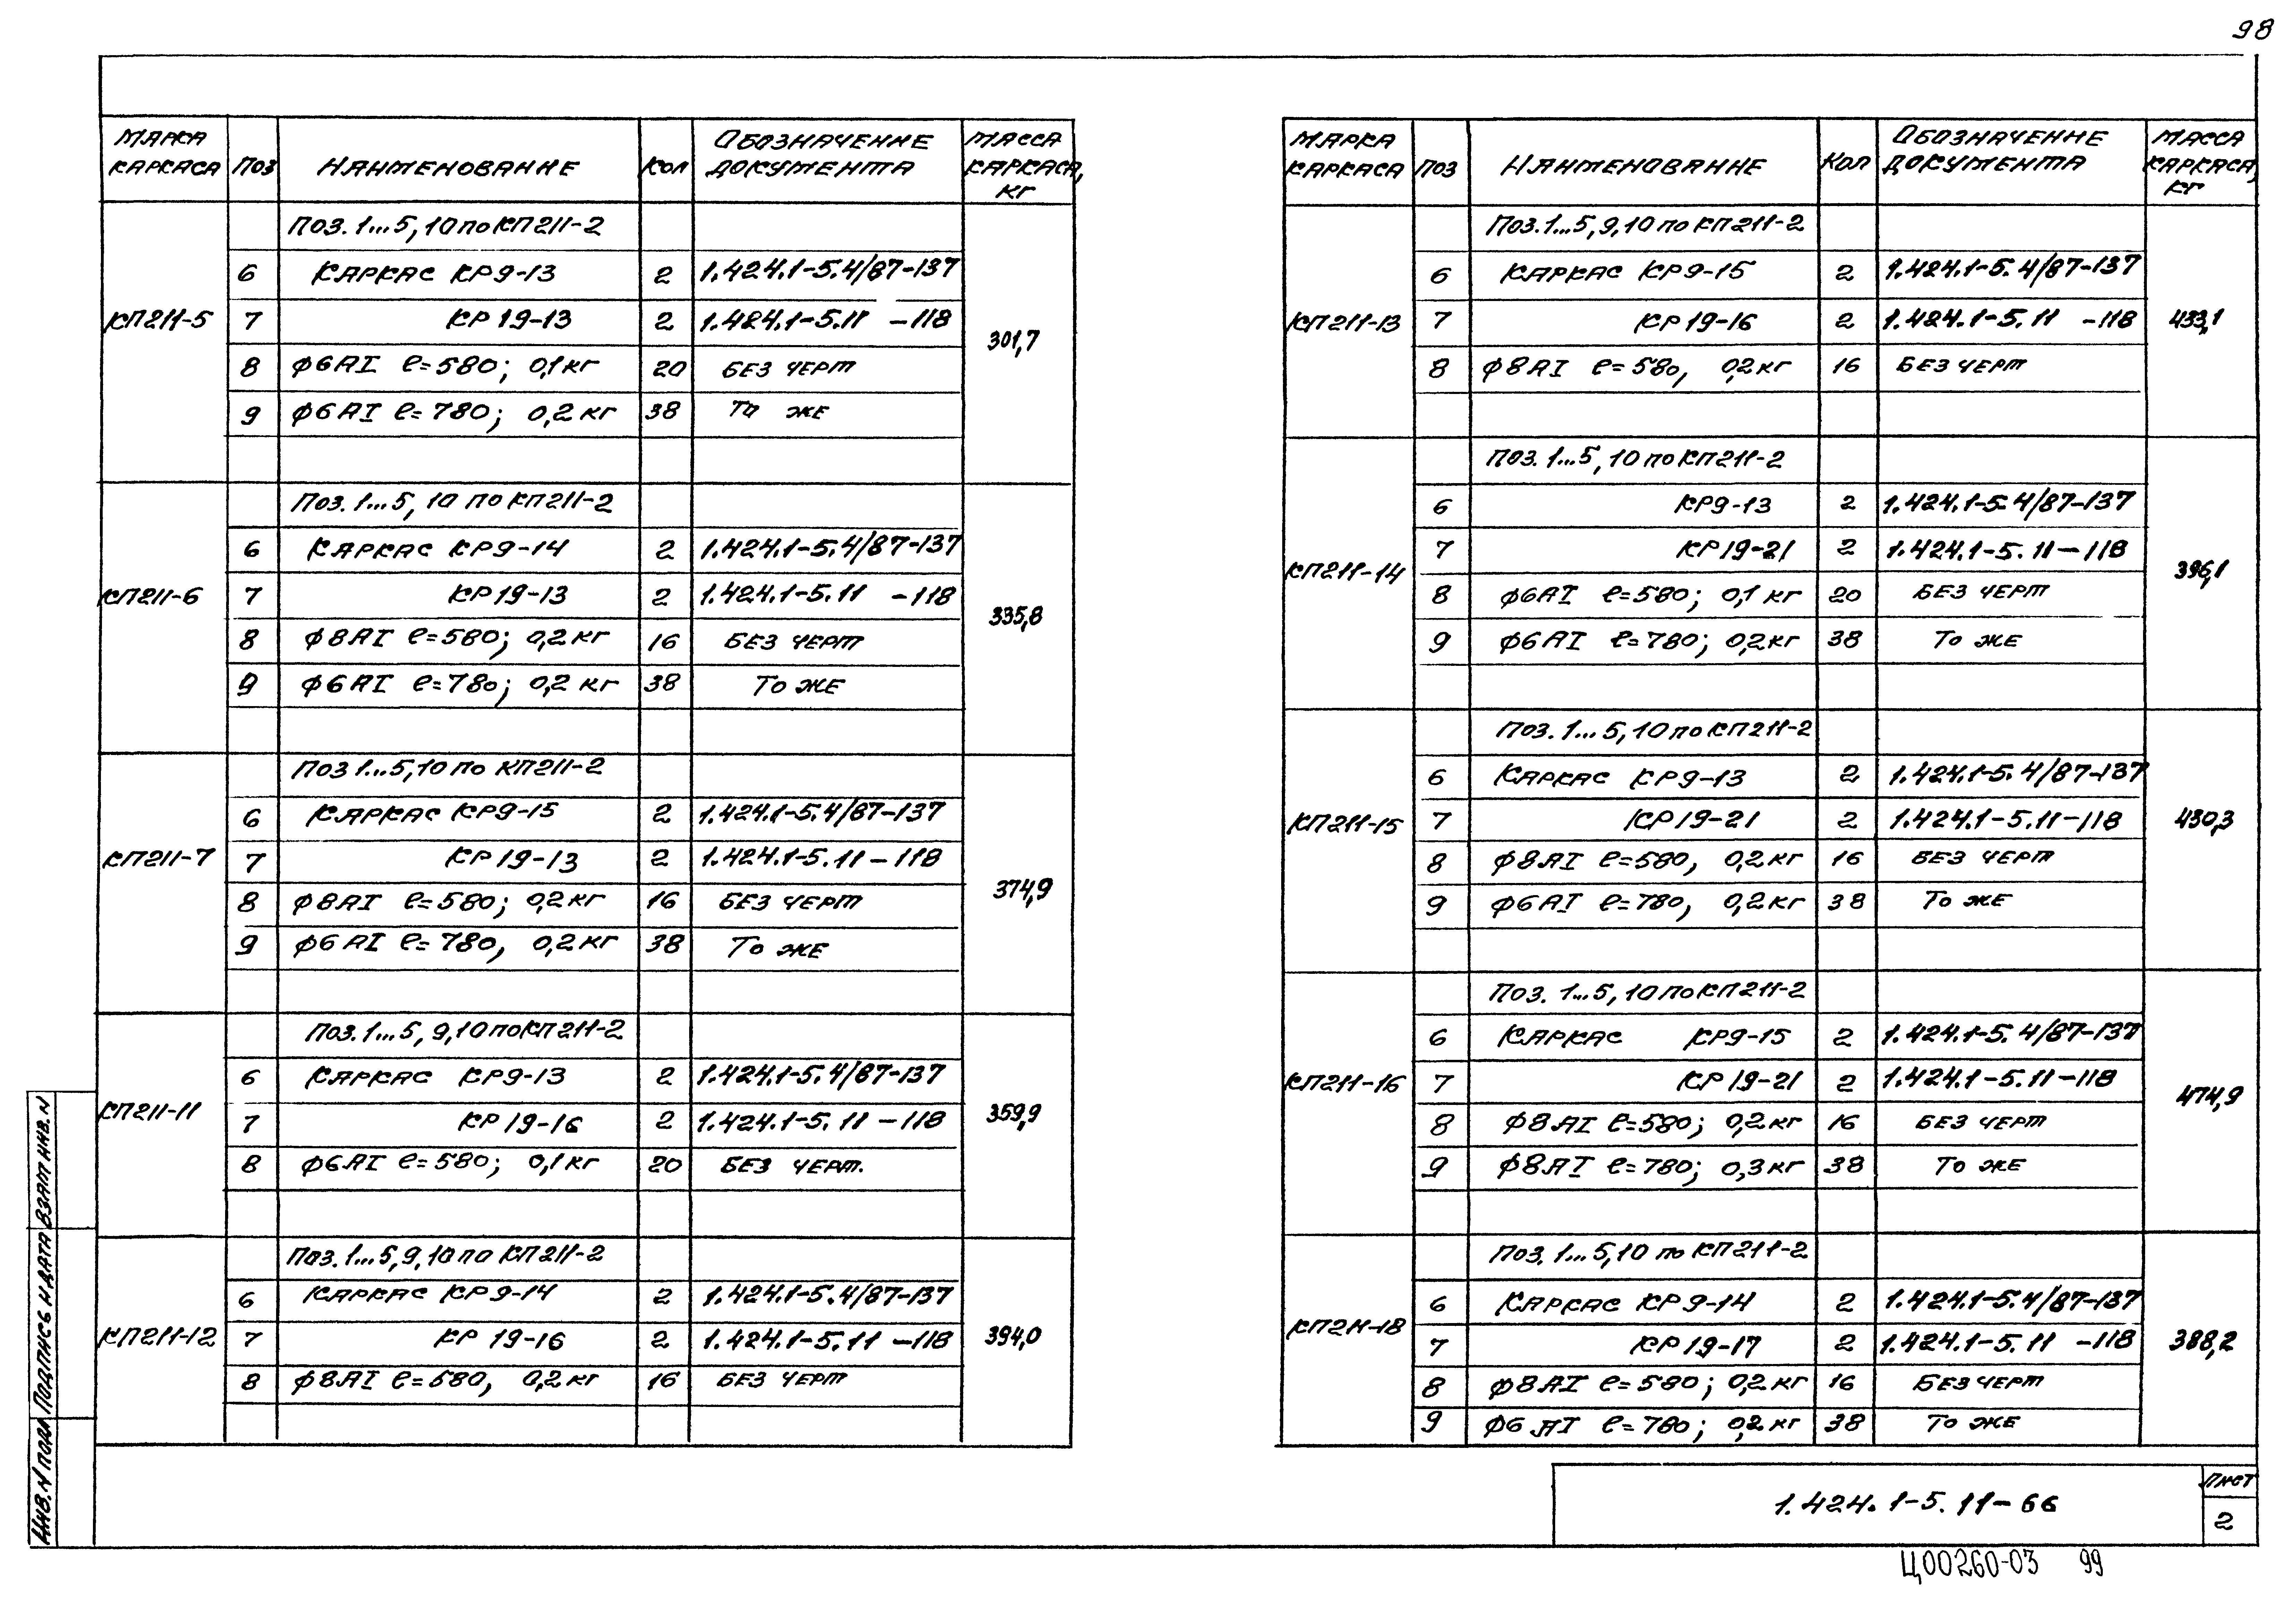 98
Марка каркаса | Поз | Наименование | Кол | Обозначение документа | Масса каркаса, кг
Поз. 1...5, 10 по КП211-2
КП211-5 | 301,7
6 | Каркас КР9-13 | 2 | 1.424.1-5.4/87-137
7 | КР19-13 | 2 | 1.424.1-5.11 -118
8 | ф6АI ℓ=580; 0,1кг | 20 | без черт
9 | ф6АI ℓ=780; 0,2кг | 38 | То же
Поз. 1...5, 10 по КП211-2
КП211-6 | 335,8
6 | Каркас КР9-14 | 2 | 1.424.1-5.4/87-137
7 | КР19-13 | 2 | 1.424.1-5.11 -118
8 | ф8АI ℓ=580; 0,2кг | 16 | без черт
9 | ф6АI ℓ=780; 0,2кг | 38 | То же
Поз 1...5,10 по КП211-2
КП211-7 | 374,9
6 | Каркас КР9-15 | 2 | 1.424.1-5.4/87-137
7 | КР19-13 | 2 | 1.424.1-5.11-118
8 | ф8АI ℓ=580; 0,2кг | 16 | без черт
9 | ф6АI ℓ=780, 0,2кг | 38 | То же
Поз. 1...5, 9,10 по КП211-2
КП211-11 | 359,9
6 | Каркас КР9-13 | 2 | 1.424.1-5.4/87-137
7 | КР19-16 | 2 | 1.424.1-5.11-118
8 | ф6АI ℓ=580; 0,1кг | 20 | без черт.
Поз. 1...5,9,10 по КП211-2
КП211-12 | 394,0
6 | Каркас КР9-14 | 2 | 1.424.1-5.4/87-137
7 | КР 19-16 | 2 | 1.424.1-5.11 -118
8 | ф8АI ℓ=580, 0,2кг | 16 | без черт
Марка каркаса | Поз | Наименование | Кол | Обозначение документа | Масса каркаса, кг
Поз. 1...5,9,10 по КП211-2
КП211-13 | 433,1
6 | Каркас КР9-15 | 2 | 1.424.1-5.4/87-137
7 | КР19-16 | 2 | 1.424.1-5.11 -118
8 | ф8АI ℓ=580, 0,2кг | 16 | без черт
Поз. 1...5, 10 по КП211-2
КП211-14 | 396,1
6 | КР9-13 | 2 | 1.424.1-5.4/87-137
7 | КР19-21 | 2 | 1.424.1-5.11-118
8 | ф6АI ℓ=580; 0,1кг | 20 | без черт
9 | ф6АI ℓ=780; 0,2кг | 38 | То же
Поз. 1...5,10 по КП211-2
КП211-15 | 430,3
6 | Каркас КР9-13 | 2 | 1.424.1-5.4/87-137
7 | КР19-21 | 2 | 1.424.1-5.11-118
8 | ф8АI ℓ=580, 0,2кг | 16 | без черт
9 | ф6АI ℓ=780, 0,2кг | 38 | То же
Поз. 1...5, 10 по КП211-2
КП211-16 | 474,9
6 | Каркас КР9-15 | 2 | 1.424.1-5.4/87-137
7 | КР19-21 | 2 | 1.424.1-5.11-118
8 | ф8АI ℓ=580; 0,2кг | 16 | без черт
9 | ф8АI ℓ=780; 0,3кг | 38 | То же
Поз. 1...5,10 по КП211-2
КП211-18 | 388,2
6 | Каркас КР9-14 | 2 | 1.424.1-5.4/87-137
7 | КР19-17 | 2 | 1.424.1-5.11 -118
8 | ф8АI ℓ=580; 0,2кг | 16 | без черт
9 | ф6АI ℓ=780; 0,2кг | 38 | То же
Инв. N подл Подпись и дата Взам инв. N
1.424.1-5.11-66
Лист
2
Ц00260-03 99